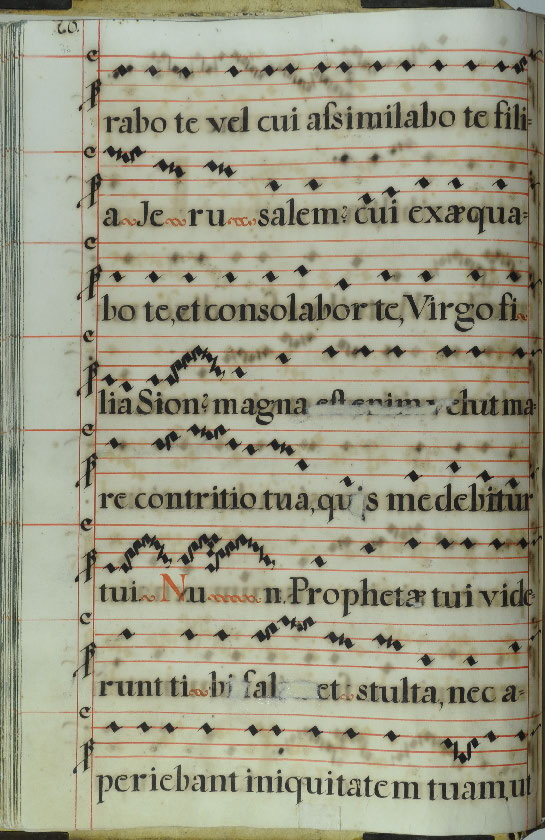 20.
rabo te vel cui assimilabo te fili-
a Jerusalem? cui exæqua-
bo te, et consolabor te, Virgo fi
lia Sion? magna est enim velut ma-
re contritio tua, quis medebitur
tui. Nun. Prophetæ tui vide-
runt tibi fal et stulta, nec a-
periebant iniquitatem tuam, ut